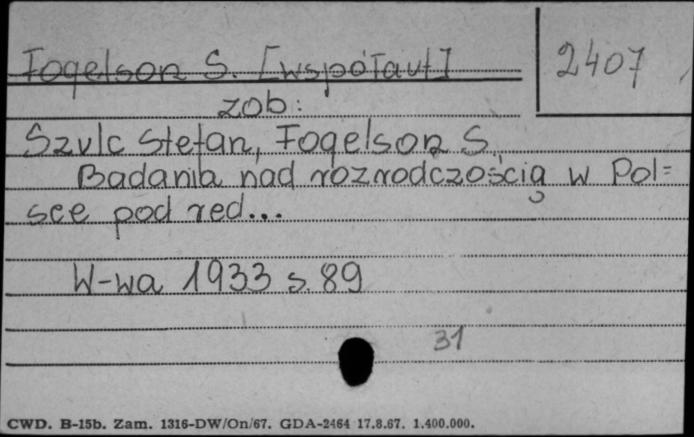 Fogelson S. [współaut]
2407
zob:
Szulc Stefan, Fogelson S.
Badania nad rozrodczością w Pol=
sce pod red...
W-wa 1933 s. 89
31
CWD. B-15b. Zam. 1316-DW/On/67. GDA-2464 17.8.67. 1.400.000.